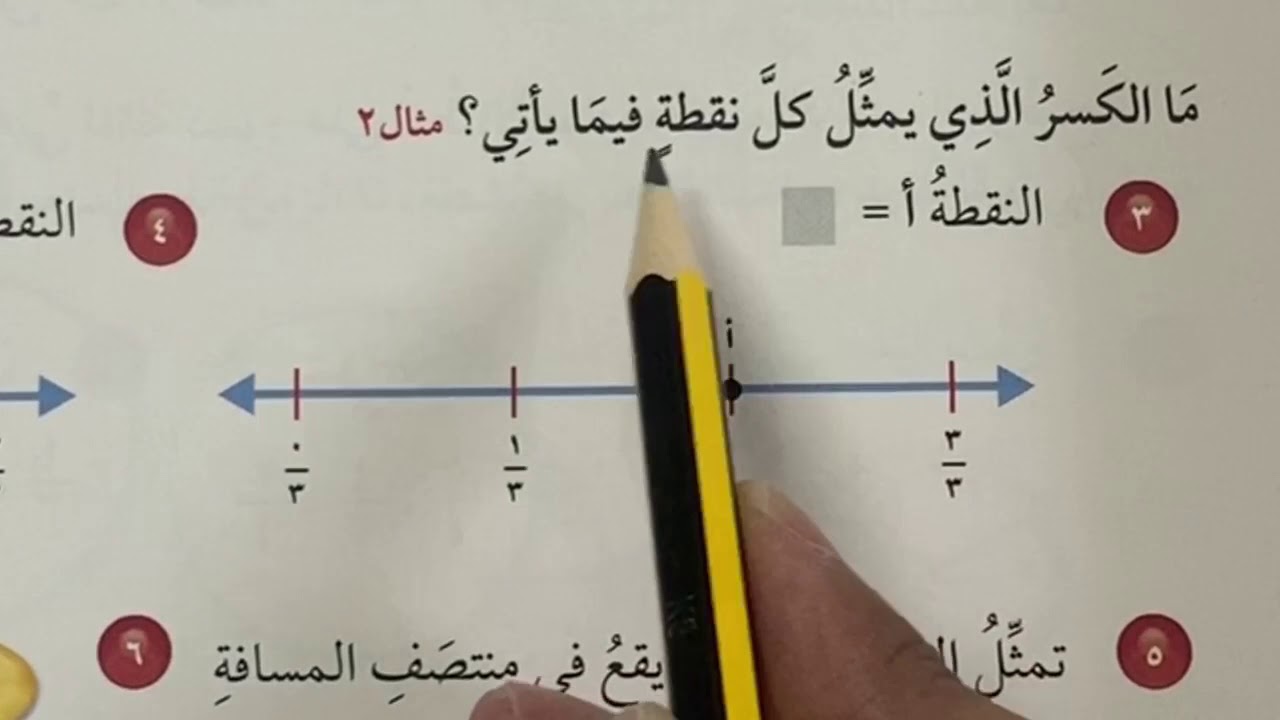 مَا الكَسرُ الَّذِي يمثِّلُ كلَّ نقطةٍ فيمَا يأتِي؟ مثال٢
٣ النقطةُ أ =
٤
أ
٠/٣ ١/٣ ٣/٣
٥ تمثِّلُ يقعُ في منتصَفِ المسافةِ
٦